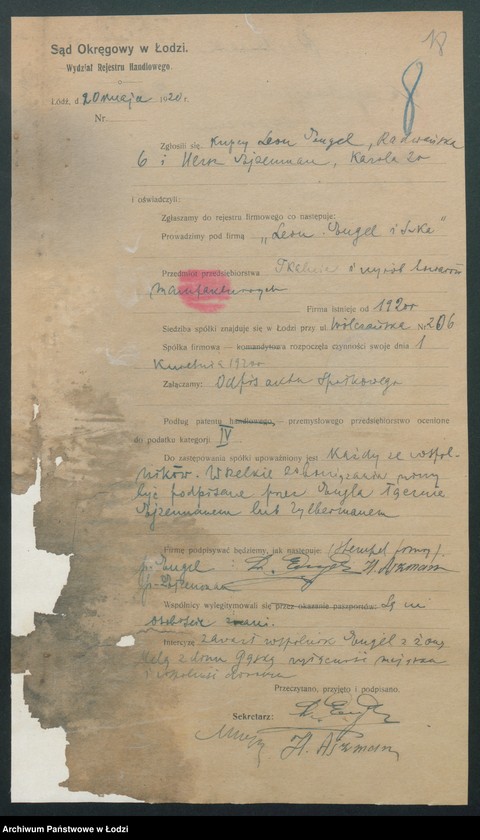 18
Sąd Okręgowy w Łodzi.
Wydział Rejestru Handlowego.
8
Łódź, d. 20 maja 1920 r.
Nr.
Zgłosili się kupcy Leon Engel, Radwańska
6 i Herm Ajzenman, Karola 20
i oświadczyli:
Zgłaszamy do rejestru firmowego co następuje:
Prowadzimy pod firmą „Leon Engel i S-ka"
Przedmiot przedsiębiorstwa Tkalnia i wyrób towarów
manufakturowych
Firma istnieje od 1920 r
Siedziba spółki znajduje się w Łodzi przy ul. Wólczańska Nr 206
Spółka firmowa — komandytowa rozpoczęła czynności swoje dnia 1
Kwietnia 1920 r
Załączamy: Odpis aktu Spółkowego
Podług patentu handlowego, — przemysłowego przedsiębiorstwo ocenione
do podatku kategorji IV
Do zastępowania spółki upoważniony jest Każdy ze wspól-
ników. Wszelkie zobowiązania winny
być podpisane przez Engla łącznie
Ajzenmanem lub Zylbermanem
Firmę podpisywać będziemy, jak następuje: (Stempel firmy)
p. Engel : L. Engel H. Aizman
p.
Wspólnicy wylegitymowali się przez okazanie paszportów: Są mi
osobiście znani.
Intercyzę zawarł wspólnik Engel z żoną
z domu wyłączność majątku
i wspólność dorobku
Przeczytano, przyjęto i podpisano.
Sekretarz: L. Engel
H. Aizman
Archiwum Państwowe w Łodzi